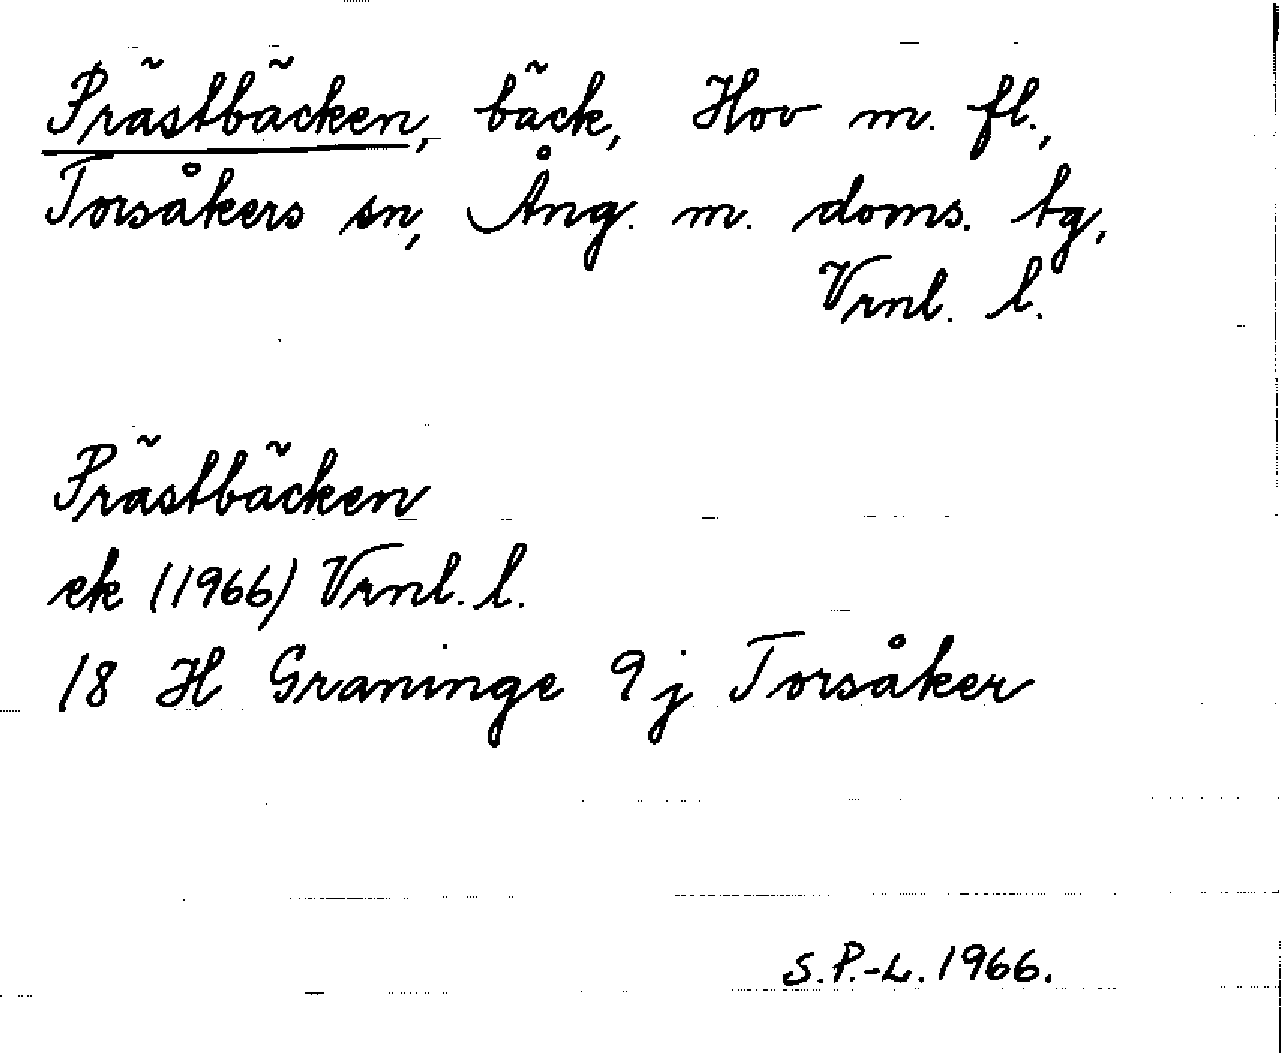 Prästbäcken, bäck, Hov m. fl.,
Torsåkers sn, Ång. m. doms. tg,
Vrnl. l.
Prästbäcken
ek (1966) Vrnl. l.
18 H Graninge 9 j Torsåker
S. P.-L. 1966.